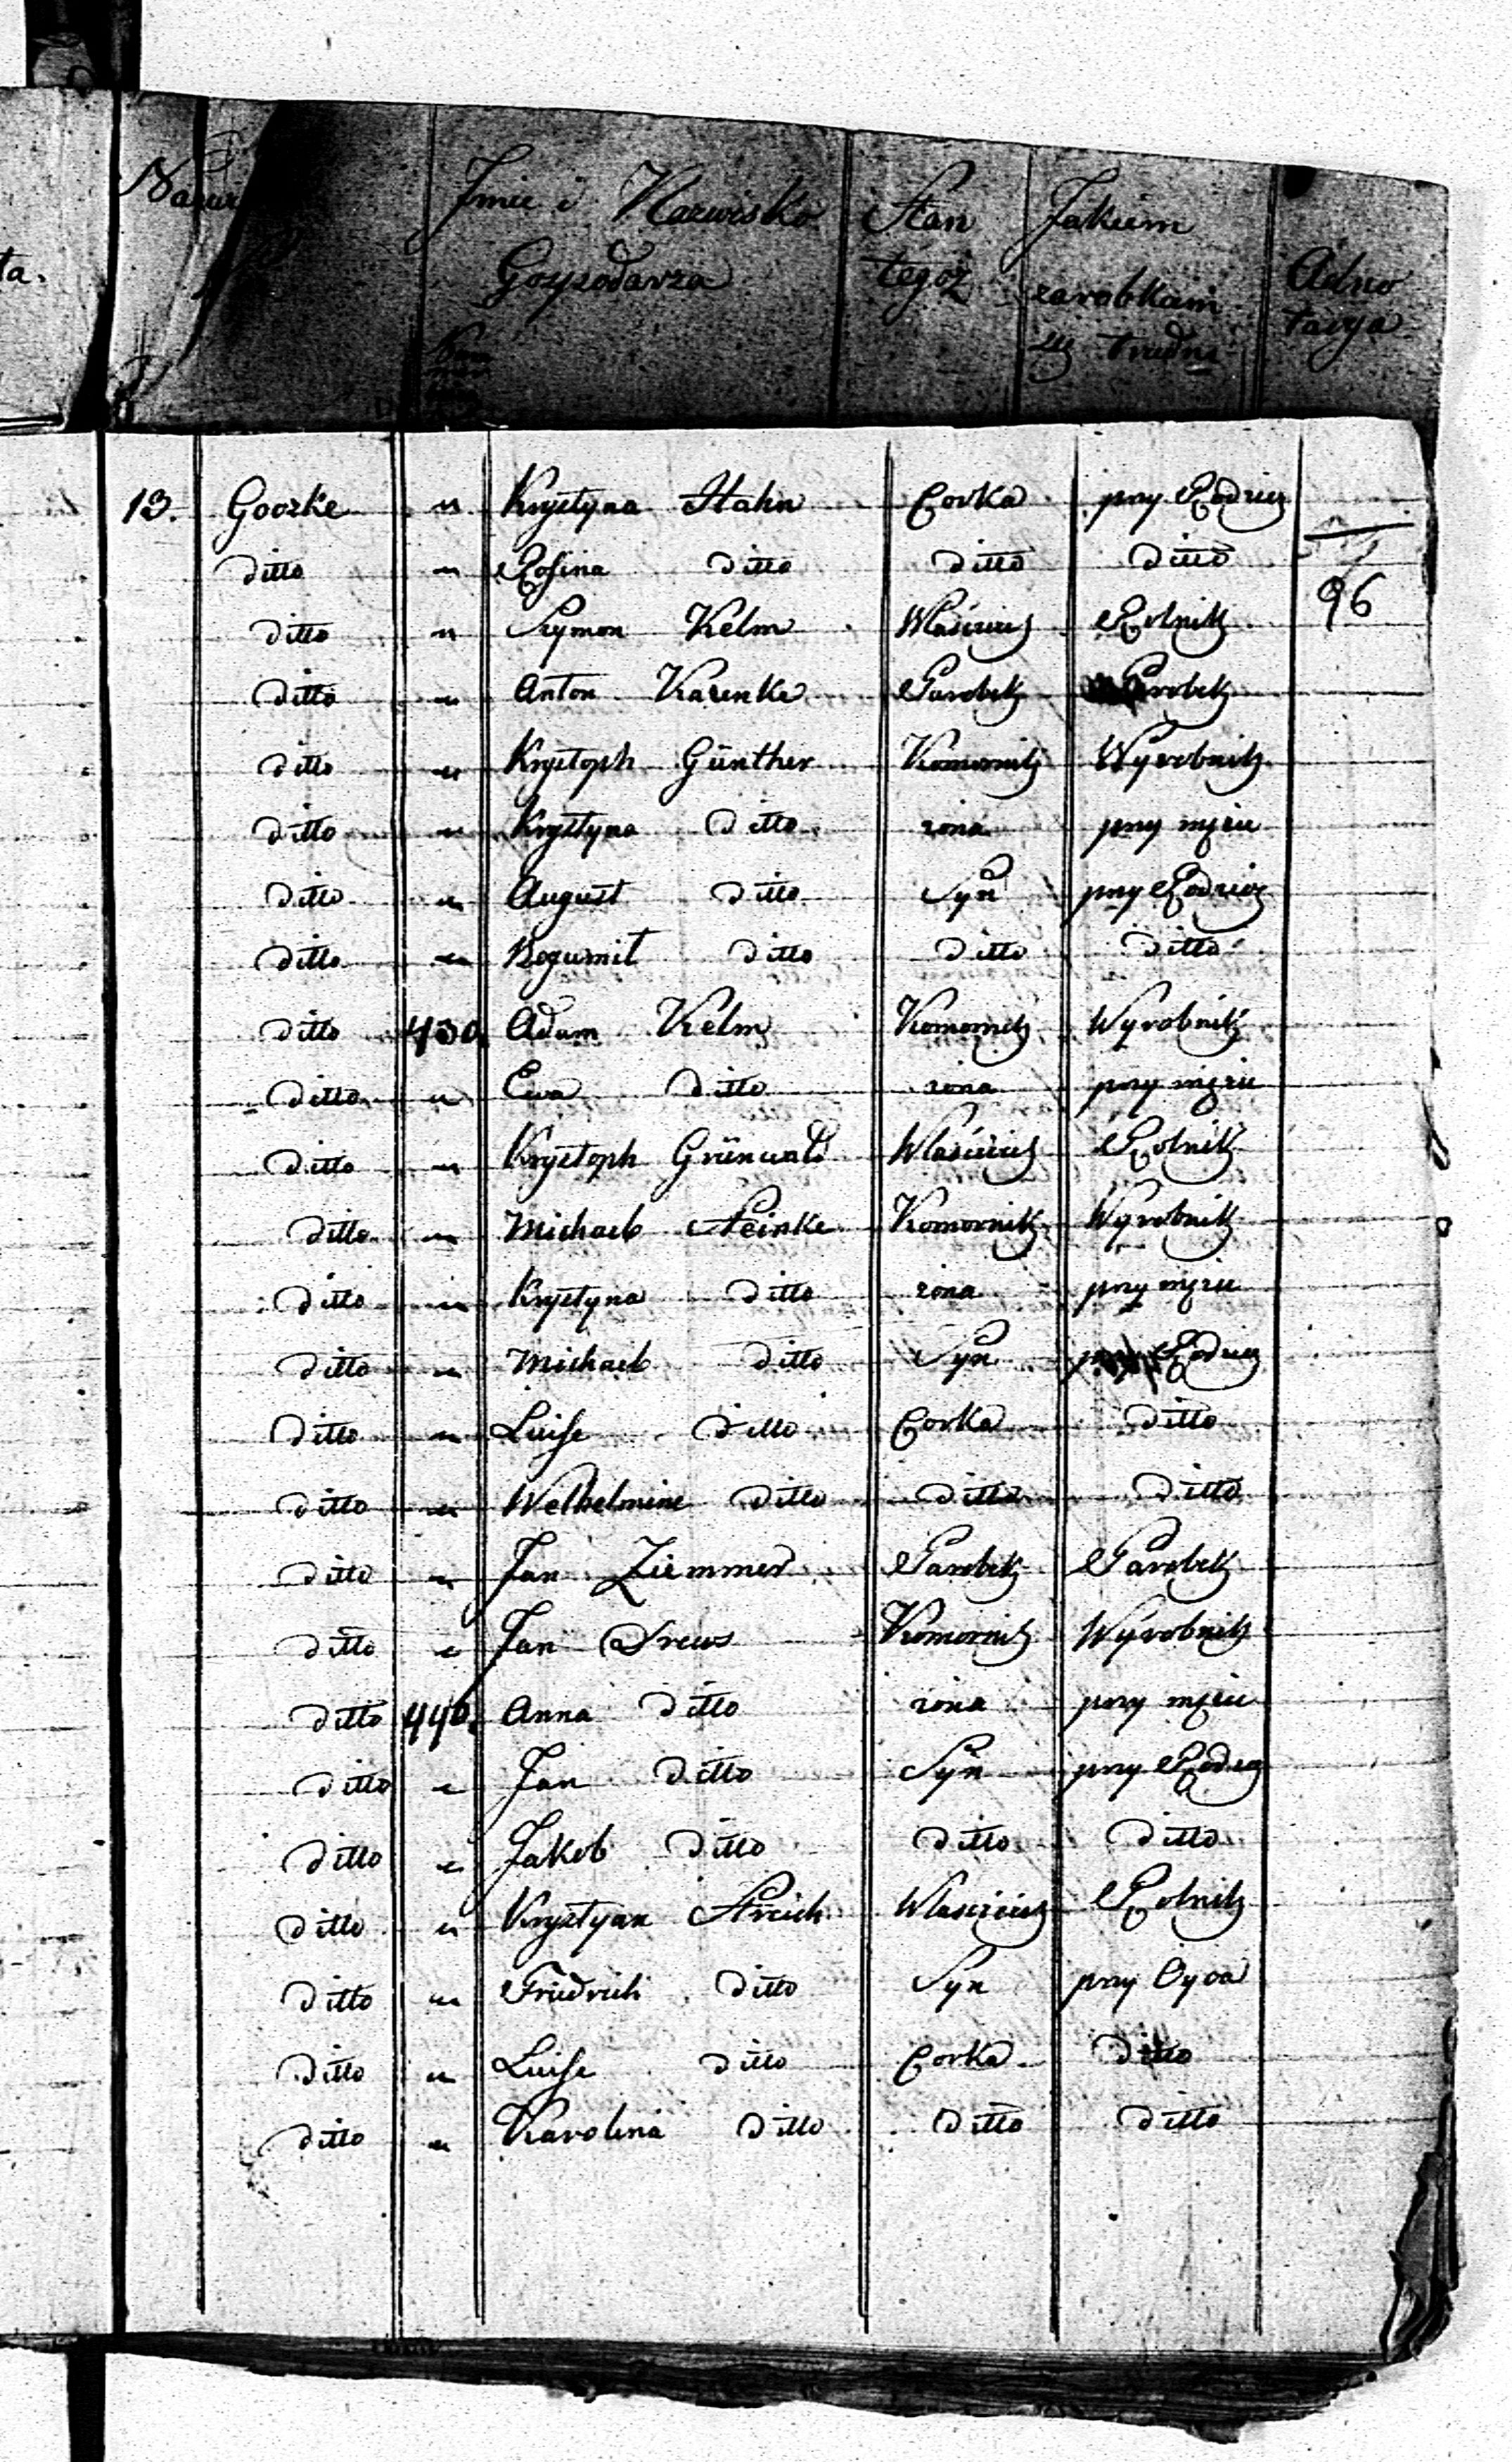 ta.
Imie i Nazwisko Gospodarza
Stan tegoż
Jakiem zarobkiem się trudni
Adno tacya
13. Goorke " Krystyna Hahn Corka przy Rodzicz
ditto " Rosina ditto ditto ditto
96
ditto " Szymon Kelm Właściciel Rolnik
ditto " Anton Karenke Parobek Parobek
ditto " Krystoph Günther Komornik Wyrobnik
ditto " Krystyna ditto zona przy mężu
ditto " August ditto Syn przy Rodzicz
ditto " Bogumił ditto ditto ditto
ditto 430. Adam Kelm Komornik Wyrobnik
ditto " Ewa ditto zona przy mężu
ditto " Krystoph Grünwald Właściciel Rolnik
ditto " Michael Steinke Komornik Wyrobnik
ditto " Krystyna ditto zona przy mężu
ditto " Michael ditto Syn przy Rodzicz
ditto " Luise ditto Corka ditto
ditto " Welhelmine ditto ditto ditto
ditto " Jan Ziemmer Parobek Parobek
ditto " Jan Drews Komornik Wyrobnik
ditto 440. Anna ditto zona przy mężu
ditto " Jan ditto Syn przy Rodzicz
ditto " Jakob ditto ditto ditto
ditto " Krystyan Streich Właściciel Rolnik
ditto " Friedrich ditto Syn przy Oyca
ditto " Luise ditto Corka ditto
ditto " Karolina ditto ditto ditto